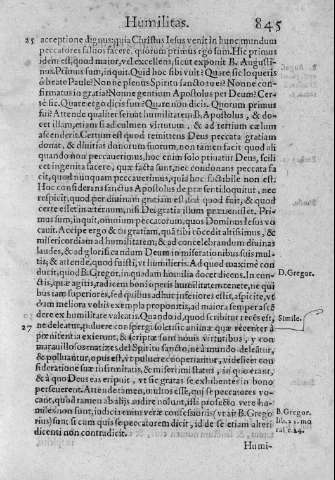 Humilitas. 845
25 acceptione dignus: quia Christus Iesus venit in hunc mundum
peccatores saluos facere, quorum primus ego sum. Hic primus
idem est, quod maior, vel excellens, sicut exponit B. Augusti-
nus. Primus sum, inquit. Quid hoc sibi vult? Quare sic loqueris
ô beate Paule? Nonne plenus Spiritu sancto tu es? Nonne con-
firmatus in gratia? Nonne gentium Apostolus per Deum? Cer-
tè sic. Quare ergo dicis sum? Quare non dicis. Quorum primus
fui? Attende qualiter seruat humilitatem B. Apostolus, & do-
cet illam, etiam si ad culmen virtutum, & ad tertium cælum
ascenderis. Certum est quod remittens Deus peccata gratiam
donat, & diuitias donorum suorum, non tamen facit quod ali
quando non peccauerimus, hoc enim solo priuatur Deus, scili
cet ingenita facere, quæ facta sunt, nec condonans peccata fa
cit, quod nunquam peccauerimus, quia hoc factibile non est.
Hoc considerans sanctus Apostolus de præsenti loquitur, nec
respicit, quod per diuinam gratiam est, sed quod fuit, & quod
certe esset in æternum, nisi Dei gratia illum præuenisset. Pri-
mus sum, inquit, omnium peccatorum, quos Dominus Iesus vo
cauit. Accipe ergo & tu gratiam, quā tibi cōcedit altissimus, &
misericordiam ad humilitatem, & ad concelebrandum diuinas
laudes, & ad glorificandum Deum in miserationibus suis mul-
tis; & attende, quod fuisti, vt humilieris. Ad quod maximè con
ducit, quod B. Gregor. in quadam homilia docet dicens. In cun-
ctis, quæ agitis, radicem boni operis humilitatem tenete, ne qui
bus iam superiores, sed quibus adhuc inferiores estis, aspicite, vt
dum meliora vobis exempla proponitis, ad maiora semper ascē
dere ex humilitate valeatis. Quando id, quod scribitur recēs est,
27 ne deleatur, puluere conspergi solet: sic animæ quæ recenter à
pœnitentia exierunt, & scriptæ sunt nouis virtutibus, y con
marauillosos matizes del Spiritu sancto, ne à mundo deleātur,
& polluantur, opus est, vt puluere cooperiantur, videlicet con
sideratione suæ infirmitatis, & miserimi status, in quo erant,
& à quo Deus eas eripuit, vt sic gratas se exhibentes in bono
perseuerent. Attende tamen, multos esse, qui se peccatores vo-
cant, quod tamen ab alijs audire nolunt, isti profecto vere hu-
miles non sunt, iudicia enim veræ confessionis (vt ait B. Grego
rius) sunt: si cum quis se peccatorem dicit, id de se etiam alteri
dicenti non contradicit.
D. Gregor.
Simile.
B. Gregor.
Humi-